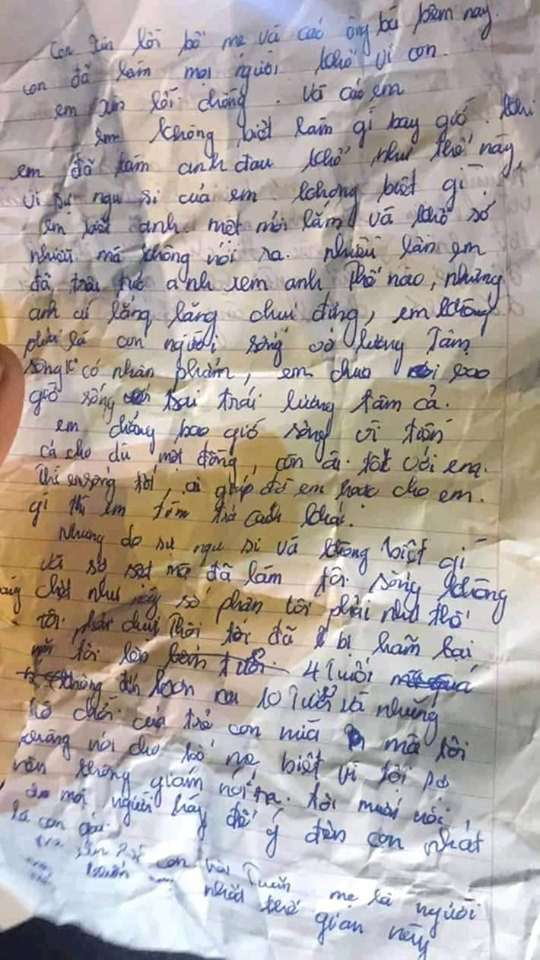 Con xin lỗi bố mẹ và các ông bà hôm nay.
con đã làm mọi người khổ vì con.
em xin lỗi chồng. Và các em
em không biết làm gì bay giờ. khi
em đã làm anh đau khổ như thế này,
vì sự ngu si của em. không biết gì.
em biết anh mệt mỏi lắm và khổ sở
nhiều mà không nói ra. nhiều lần em
đã anh xem anh thế nào, nhưng
anh cứ lẳng lặng chịu đựng, em không
phải là con người sống vô lương Tâm
sống có nhân phẩm, em chưa bao
giờ sống trái lương tâm cả.
em chẳng bao giờ sống vì tiền
cả cho dù một đồng, còn ai tốt với em.
thì em sống tốt, ai giúp đỡ em hoặc cho em.
gì thì em tìm trả cách khác.
Nhưng do sự ngu si và không biết gì
và sợ sệt mà đã làm tôi sống không
chết như này số phận tôi phải như thế
tôi phải chịu thôi tôi đã bị hãm hại
tôi lên 4 tuổi
không đến hơn 10 Tuổi và những
trò chơi của trẻ con nữa mà tôi
không nói cho bố mẹ biết vì tôi
vẫn không giám nói ra. tôi muốn nói,
mọi người hãy để ý đến con nhất
là con gái.
xin con Tuấn mẹ là người
nhất thế gian này